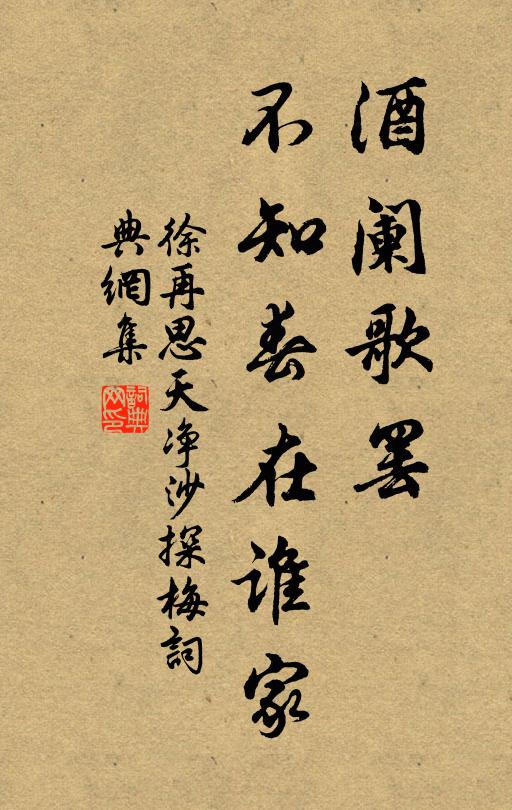 酒阑歌罢
不知春在谁家
徐再思天净沙探梅詞
典網集
詞典网印